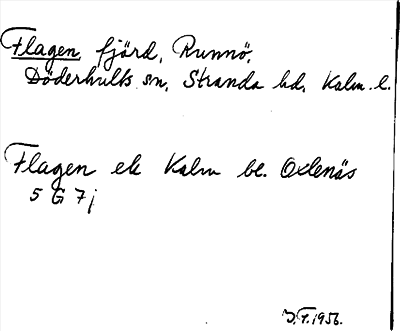 Flagen, fjärd, Runnö,
Döderhults sn, Stranda hd, Kalm. l.
Flagen ek Kalm bl. Oxlenäs
5 G 7j
J.F. 1956.